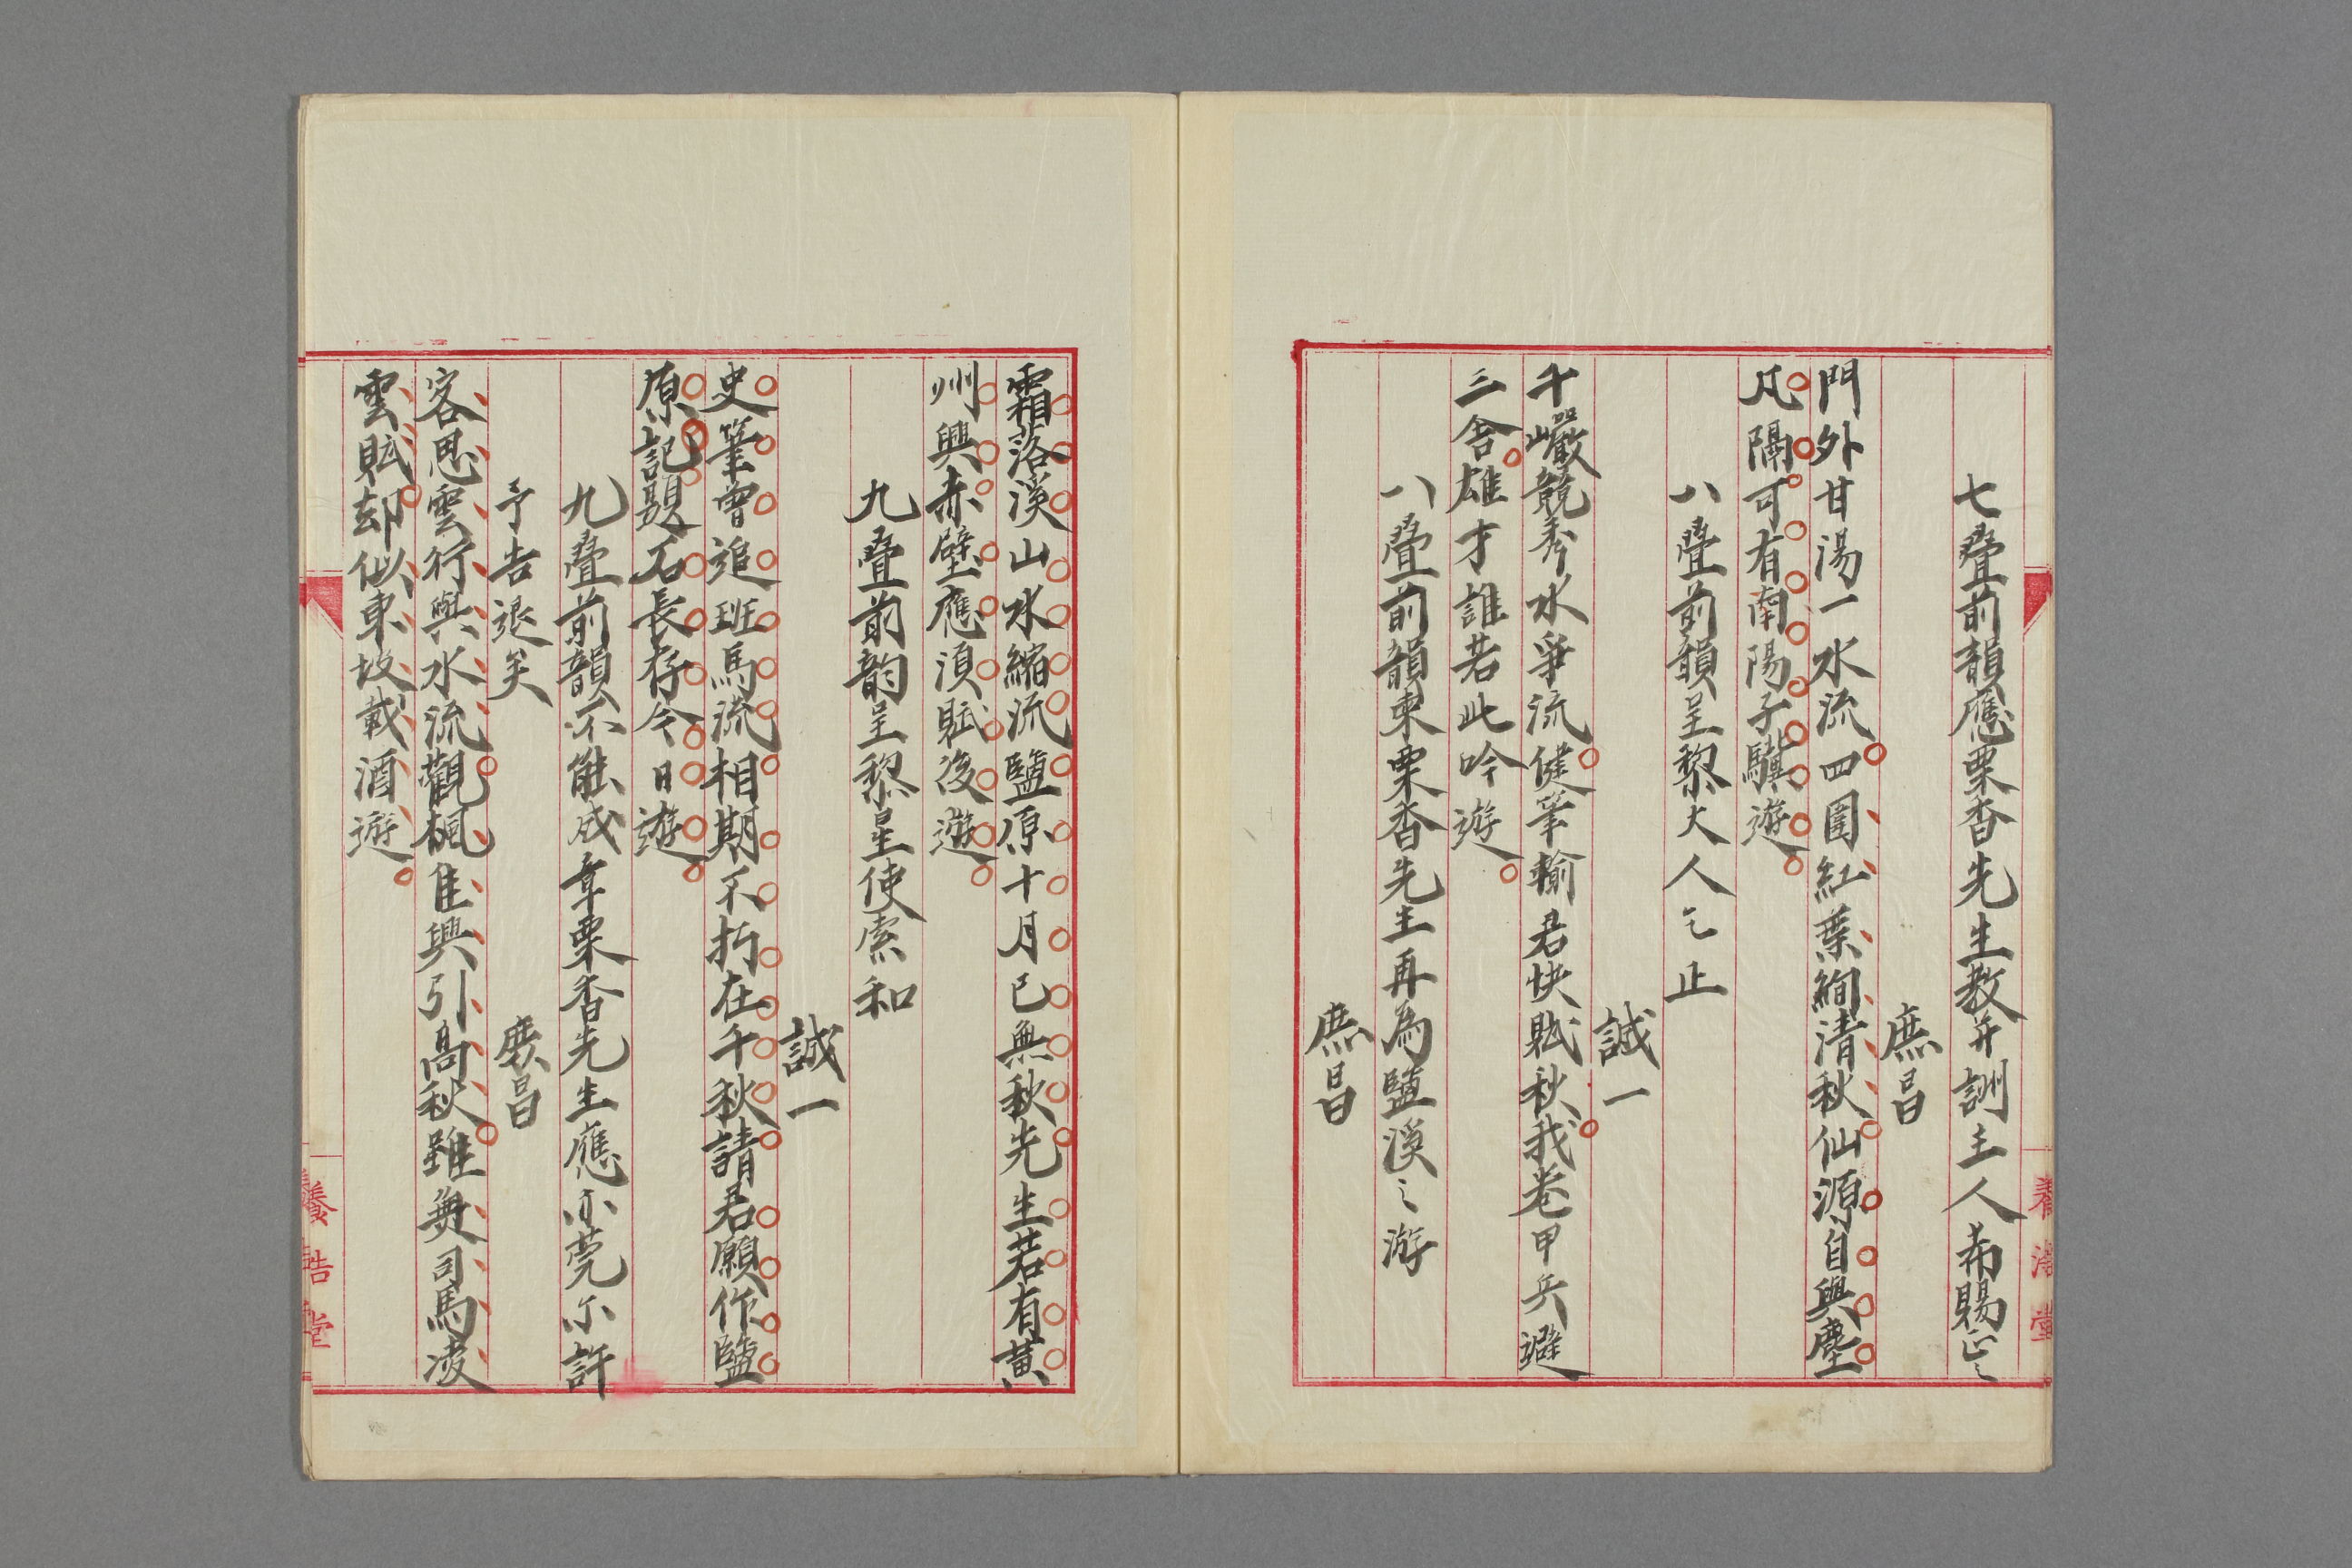 七疊前韻應栗香先生教并訓主人希賜正之
庶昌
門外甘湯一水流四圍紅葉絢清秋仙源自與塵
凡隔可有南陽子驥遊
八疊前韻呈黎大人乞止
誠一
千巖競秀水爭流健筆輸君快賦秋我卷甲兵避
三舍雄才誰若此吟遊
八疊前韻柬栗香先生再為鹽溪之游
庶昌
霜落溪山水縮流鹽原十月已無秋先生若有黃
州興赤壁應須賦後遊
九疊前韵呈黎星使索和
誠一
史筆曾追班馬流相期不朽在千秋請君願作鹽
原記題石長存今日遊
九疊前韻不能成章栗香先生應亦莞尓許
予告退矣
庶昌
客思雲行與水流觀楓佳興引高秋雖無司馬凌
雲賦却似東坡載酒遊
養浩堂
養浩堂